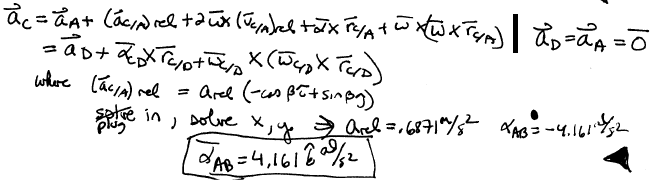 a⃗_C = a⃗_A + (a⃗_C/A)rel + 2ω̄ × (v̄_C/A)rel + α⃗ × r̄_C/A + ω̄ × (ω̄ × r̄_C/A) | a⃗_D = a⃗_A = 0̄
= a⃗_D + α⃗_CD × r̄_C/D + ω̄_C/D × (ω̄_C/D × r̄_C/D)
where (a⃗_C/A)rel = arel (-cos β î + sin β ĵ)
plug in, solve x, y ⇒ arel = .6871 m/s² α_AB = -4.161 rad/s²
α⃗_AB = 4.161 rad/s²